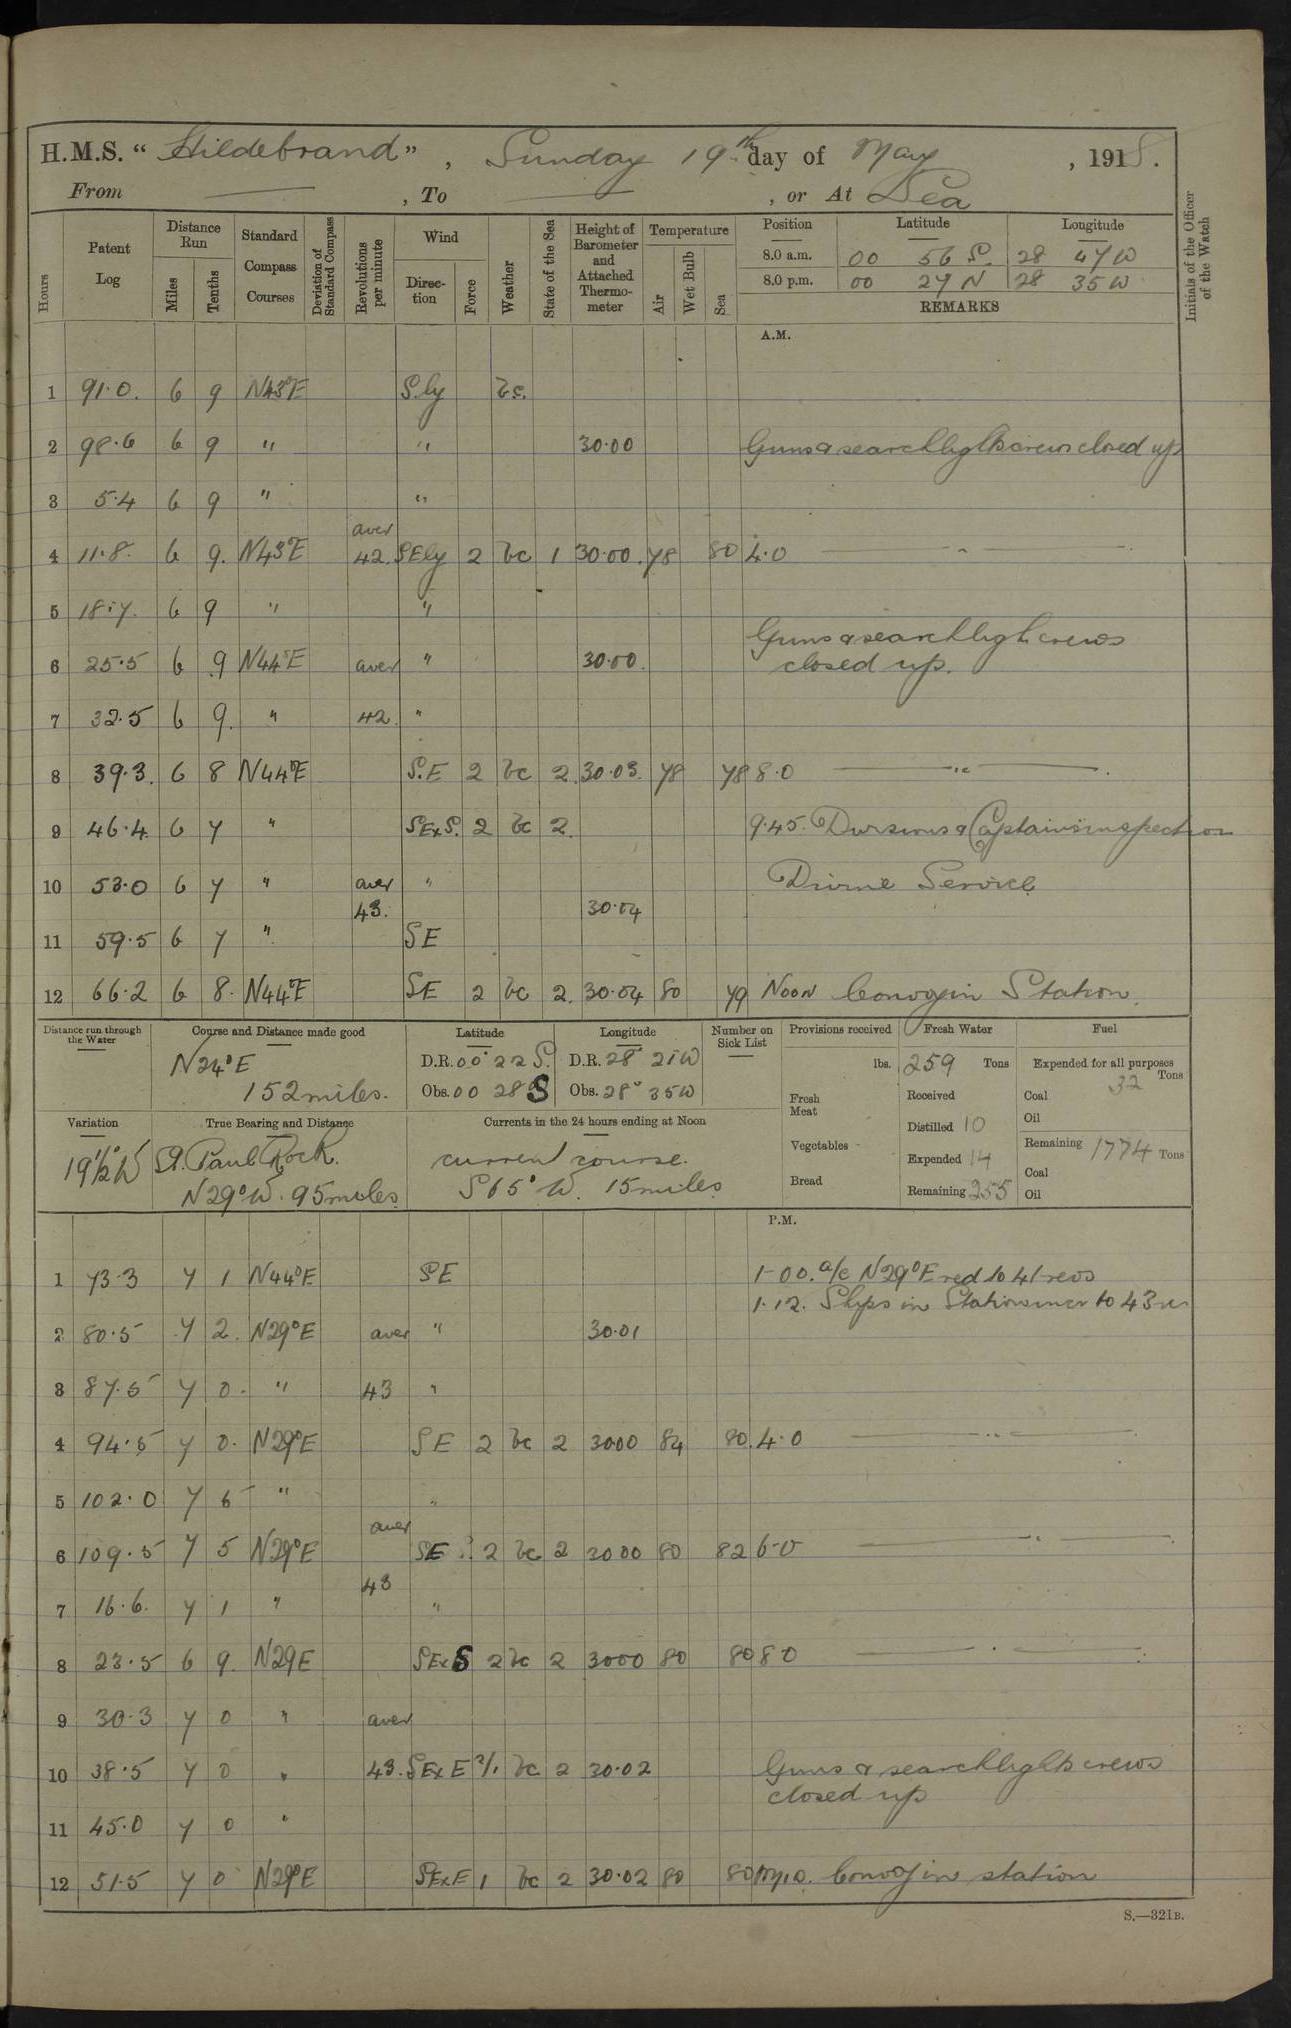 H.M.S. “ Hildebrand ” , Sunday 19th day of May , 1918.
From —— , To —— , or At Sea
Hours
Patent Log
Distance Run
Miles
Tenths
Standard Compass Courses
Deviation of Standard Compass
Revolutions per minute
Wind
Direc-tion
Force
Weather
State of the Sea
Height of Barometer and Attached Thermo-meter
Temperature
Air
Wet Bulb
Sea
Position Latitude Longitude
8.0 a.m. 00 56 S. 28 47 W
8.0 p.m. 00 27 N 28 35 W
REMARKS
Initials of the Officer of the Watch
A.M.
1 91.0. 6 9 N43°E S.ly bc.
2 98.6 6 9 " " 30.00 Guns & searchlights crews closed up
3 5.4 6 9 " "
aver
4 11.8. 6 9. N43°E 42. SEly 2 bc 1 30.00. 78 80 4.0 —— " ——
5 18.7. 6 9 " "
Guns & searchlight crews
6 25.5 6 .9 N44°E aver " 30.00. closed up.
7 32.5 6 9. " 42. "
8 39.3. 6 8 N44°E S.E 2 bc 2. 30.03. 78 78 8.0 —— " ——
9 46.4 6 7 " SExS. 2 bc 2. 9.45. Divisions & Captains inspection
10 53.0 6 7 " aver " Divine Service
43. 30.04
11 59.5 6 7 " SE
12 66.2 6 8. N44°E SE 2 bc 2. 30.04 80 79 Noon Convoy in Station.
Distance run through the Water
Course and Distance made good
N24°E
152 miles.
Latitude
D.R. 00° 22 S.
Obs. 00 28 S
Longitude
D.R. 28° 21 W
Obs. 28° 35 W
Number on Sick List
Provisions received
lbs.
Fresh Meat
Vegetables
Bread
Fresh Water
259 Tons
Received
Distilled 10
Expended 14
Remaining 255
Fuel
Expended for all purposes
32 Tons
Coal
Oil
Remaining 1774 Tons
Coal
Oil
Variation
19 1/2° W
True Bearing and Distance
St. Paul Rock.
N29°W. 95 miles
Currents in the 24 hours ending at Noon
current course.
S65°W. 15 miles
P.M.
1 73.3 7 1 N44°E SE 1-00. a/c N29°E red to 41 revs
1.12. Ships in Station incr to 43
2 80.5 7 2. N29°E aver " 30.01
3 87.5 7 0. " 43 "
4 94.5 7 0. N29°E SE 2 bc 2 3000 84 80. 4.0 —— " ——
5 102.0 7 "
aver
6 109.5 7 5 N29°E SE 2 bc 2 3000 80 82 6-0 —— " ——
43
7 16.6. 7 1 " "
8 23.5 6 9. N29E SExS 2 bc 2 3000 80 80 8 0
9 30.3 7 0 " aver
10 38.5 7 0 " 43. SExE 2/1 bc 2 30.02 Guns & searchlights crews
closed up
11 45.0 7 0 "
12 51.5 7 0 N29°E SExE 1 bc 2 30.02 80 80 Convoy in station
S.—321B.